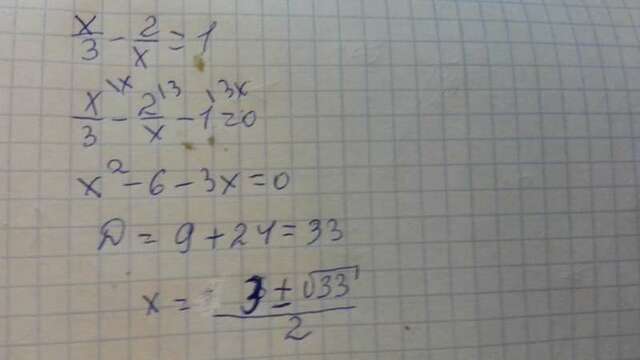 x/3 - 2/x = 1
x/3 \x - 2/x \3 - 1 \3x = 0
x² - 6 - 3x = 0
D = 9 + 24 = 33
x = (3 ± √33)/2